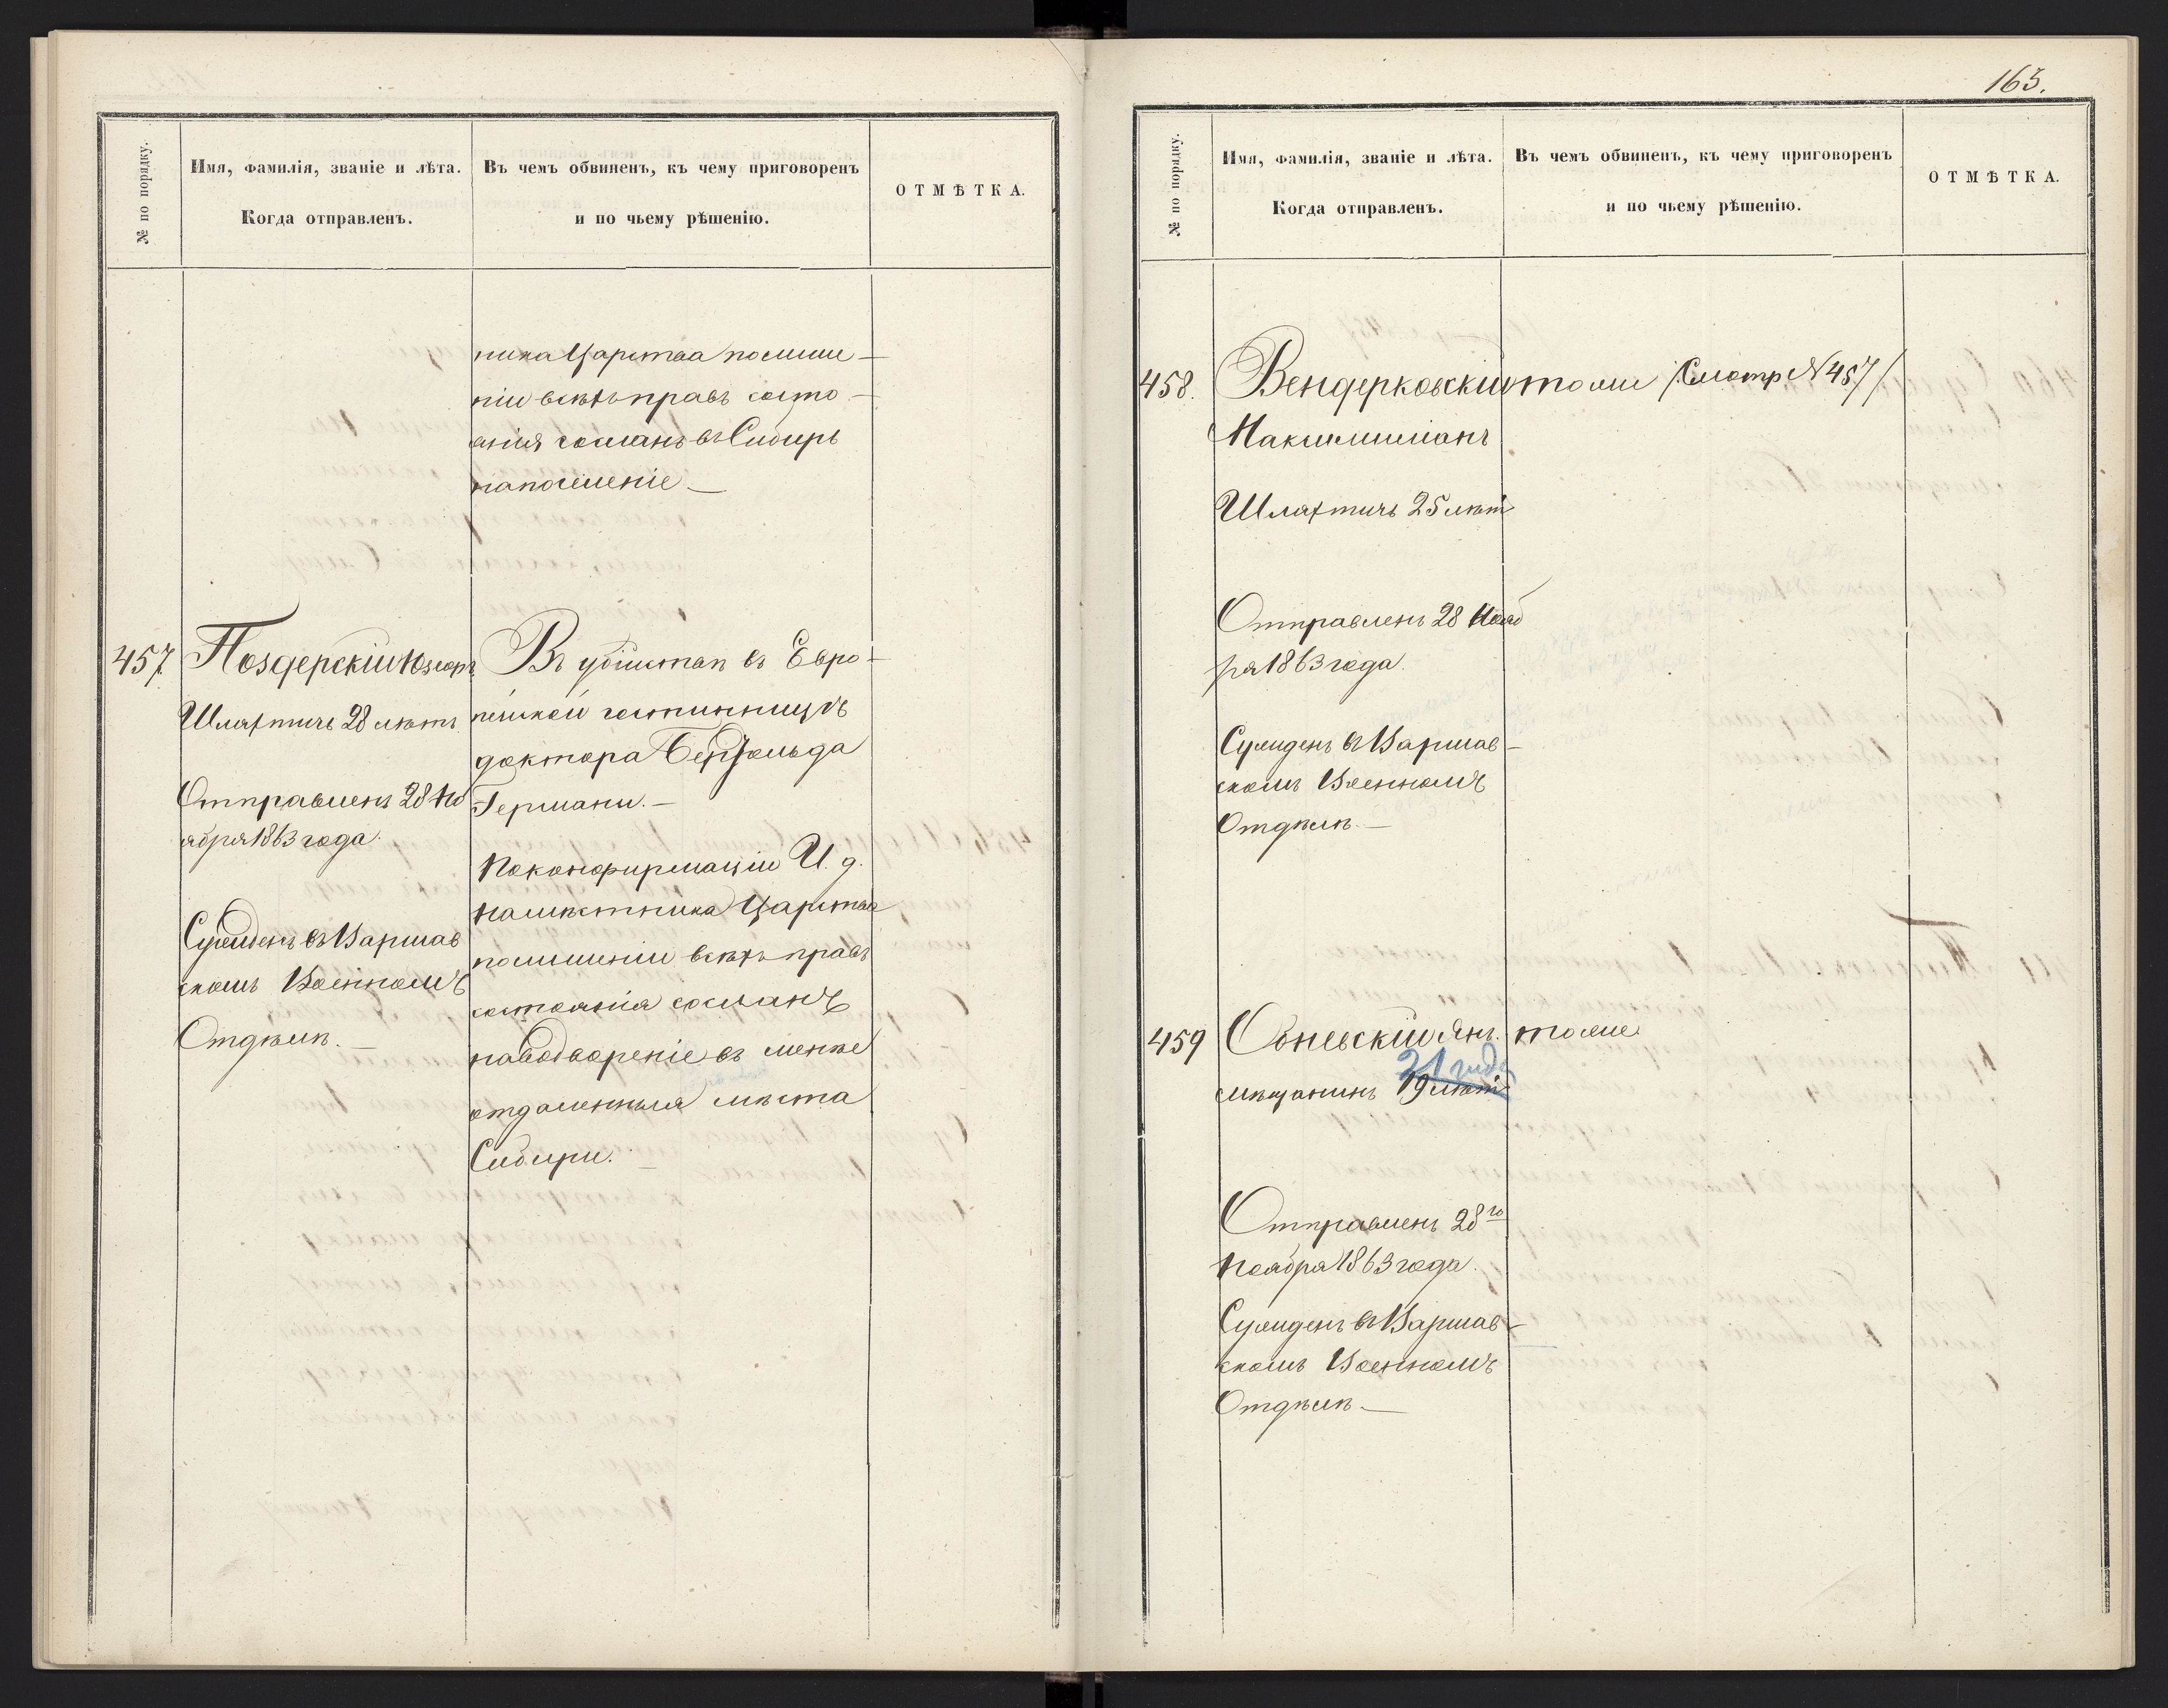 № по порядку.
Имя, фамилія, званіе и лѣта.
Когда отправленъ.
Въ чемъ обвиненъ, къ чему приговоренъ
и по чьему рѣшенію.
ОТМѢТКА.
ника Царства по лише-
ніи всѣхъ правъ состо-
янія сосланъ въ Сибирь
на поселеніе
457.
Поздерскій
Шляхтичъ 28 лѣтъ.
Отправленъ 28 Но
ября 1863 года.
Сужденъ въ Варшав
скомъ Военномъ
Отдѣлѣ.
Въ убійствѣ въ Евро-
пейской гостинницѣ
доктора
Германи.
По конфирмаціи И. д.
Намѣстника Царства
по лишеніи всѣхъ правъ
состоянія сосланъ
на водвореніе въ менѣе
отдаленныя мѣста
Сибири.
163.
№ по порядку.
Имя, фамилія, званіе и лѣта.
Когда отправленъ.
Въ чемъ обвиненъ, къ чему приговоренъ
и по чьему рѣшенію.
ОТМѢТКА.
458.
Вендерковскій
Максимиліанъ
Шляхтичъ 25 лѣтъ
Отправленъ 28 Нояб
ря 1863 года.
Сужденъ въ Варшав-
скомъ Военномъ
Отдѣлѣ.
тоже /Смотр № 457/
459
Янъ.
21 года
мѣщанинъ 19 лѣтъ
Отправленъ 28го
Ноября 1863 года.
Сужденъ въ Варшав-
скомъ Военномъ
Отдѣлѣ
тоже